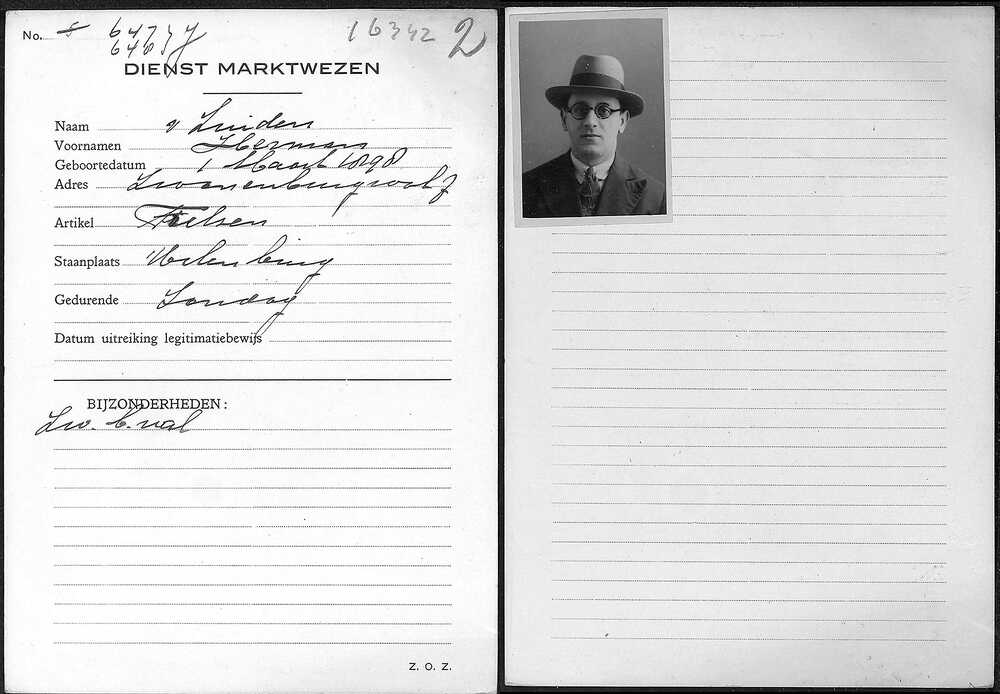 No. 16342 2
DIENST MARKTWEZEN
Naam v Linden
Voornamen Herman
Geboortedatum 1 Maart 1898
Adres Zwanenburgwal
Artikel Fretsen
Staanplaats Uilenburg
Gedurende Zondag
Datum uitreiking legitimatiebewijs
BIJZONDERHEDEN:
Zw. b. wal
Z. O. Z.